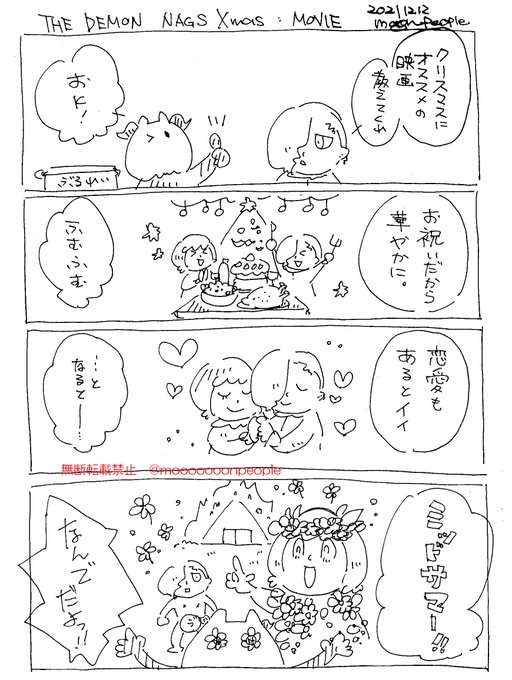 THE DEMON NAGS Xmas : MOVIE
2021/12/12
moonpeople
クリスマスに
オススメの
映画
教えてくれ
おK!
ぶるれい
お祝いだから
華やかに。
ふむふむ
恋愛も
あるとイイ
…と
なるてー
無断転載禁止 @mooooooonpeople
ミッドサマー!!
なんで
だよっ!!